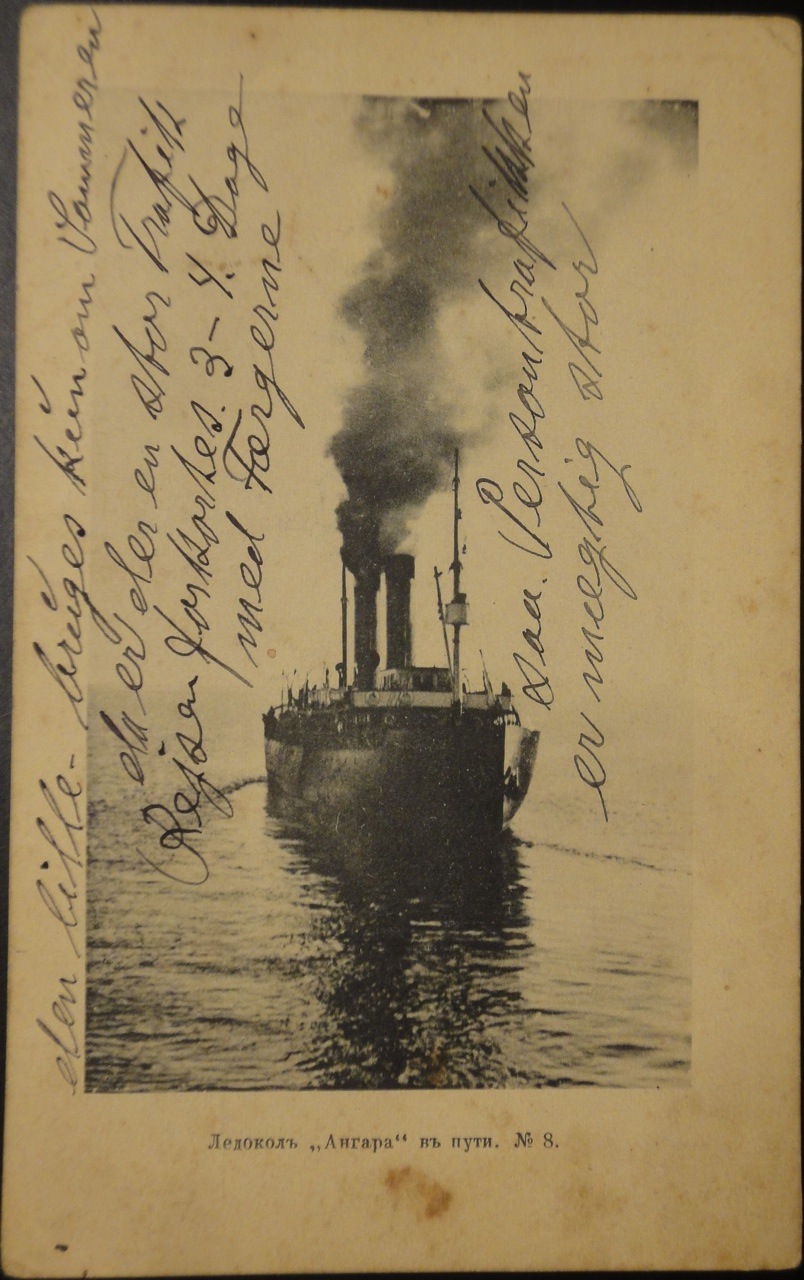 den lille - bruges kun om Sommeren
da er der en stor Trafik
Rejsen forkortes. 3-4. Dage
med Færgerne
saa. Persontrafikken
er mægtig stor
Ледоколъ „Ангара“ въ пути. № 8.